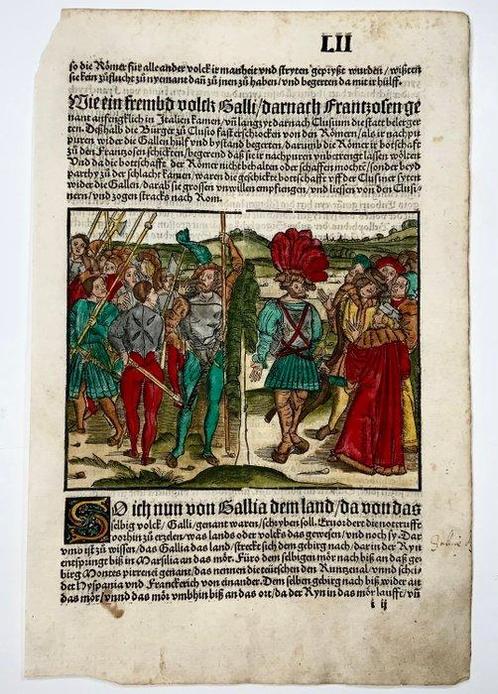 LII
so die Römer für alle ander volck ir manheit vnd stryten gepryßt wurden / wißten
sie kein zůflucht zů nyemant dañ zů jnen zů haben / vnd begerten da mit ir hülff.
Wie ein frembd volck Galli / darnach Frantzosen ge
nant anfengklich in Italien kamen / vñ langzyt darnach Clusium die statt belerger
ten. Deßhalb die Burger zů Clusio fast erschrocken von den Römern / als ir nachpu
puren wider die Gallen hülf vnd bystand begerten / darumb die Römer ir botschafft
zů den Frantzosen schickten / begerend daß sie ir nachpuren vnbetrengt lassen wölten
Vnd da die bottschafft der Römer nichts behalten oder schaffen mocht / sonder beyd
parthy zů der schlacht kamen / waren die geschickte bottschafft vff der Clusiner syten
wider die Gallen / darab sie grossen vnwillen empfiengen / vnd liessen von den Clusi-
nern / vnd zogen stracks nach Rom.
SO ich nun von Gallia dem land / da von das
selbig volck / Galli / genant waren / schryben soll. Ervordert die notturfft
vorhin zů erzelen / was lands oder volcks das gewesen / vnd noch sy. Dar
vmb ist zů wissen / das Gallia das land / streckt sich dem gebirg nach / dar in der Ryn
entspringt biß in Marsilia an das mör. Füro dem selbigen mör nach biß an daß ge-
birg Montes pirrenei genant / das nennen die teütschen den Runtzenal / vnnd schei-
det Hyspania vnd Franckerich von einander. Dem selben gebirg nach biß wider an
das mör / vnnd das mör vmbhin biß an das ort / da der Ryn in das mör laufft / vñ
i ij